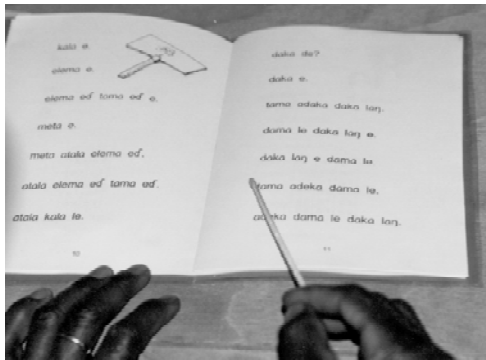 kala e.
elema e.
elema eɗ toma eɗ e.
meta e.
meta atula elema eɗ.
atala elema eɗ toma eɗ.
atala kala le.
daka de?
daka e.
tama adaka daka laŋ.
dama le daka laŋ e.
daka laŋ e dama le
tama adeka dama le.
adeka dama le daka laŋ.